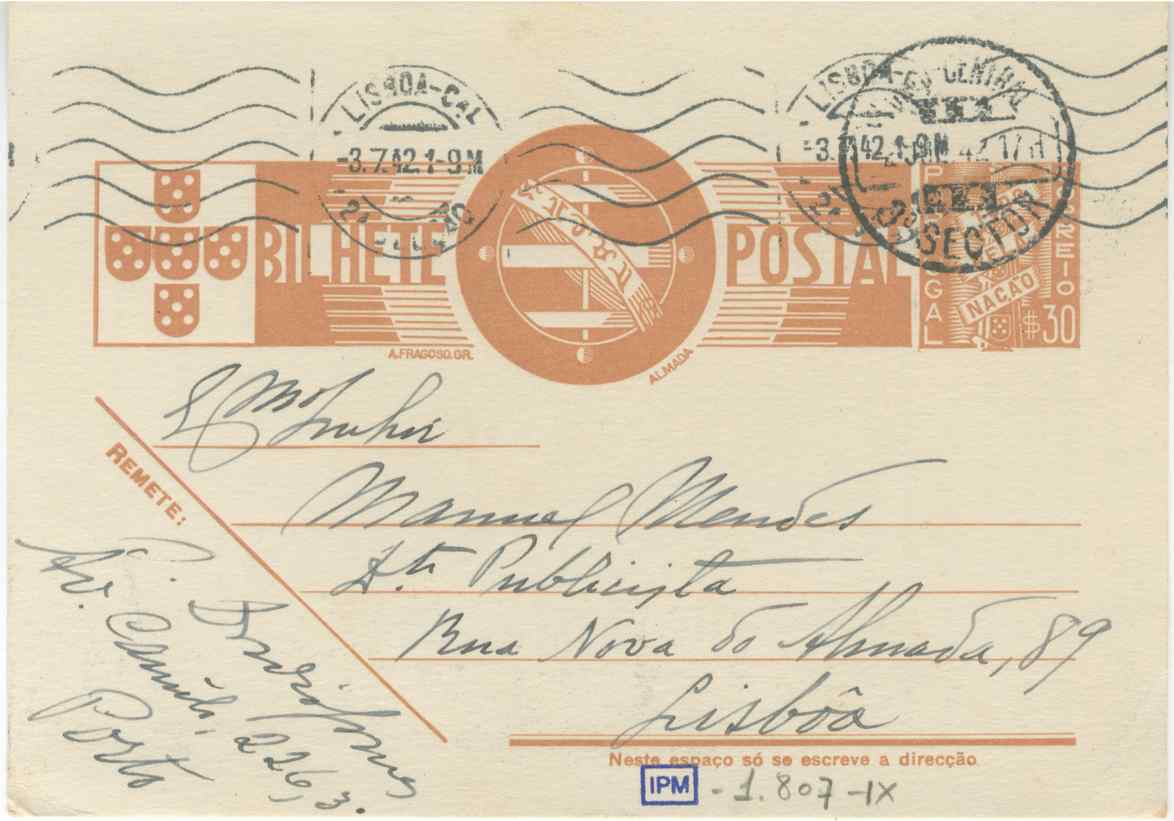 LISBOA-CAL
-3.7.42.1-9M
LISBOA
CENTRAL
-3.7.42.1-9M
42 17H
SECTOR
BILHETE
POSTAL
PORTUGAL
CORREIO
NAÇÃO
$30
A.FRAGOSO.GR.
ALMADA
Exmo
Senhor
Manuel Mendes
Publicista
Rua Nova do Almada, 89
Lisbôa
REMETE:
Av. Camilo, 226, 3.
Porto
Neste espaço só se escreve a direcção
IPM - 1.807-IX